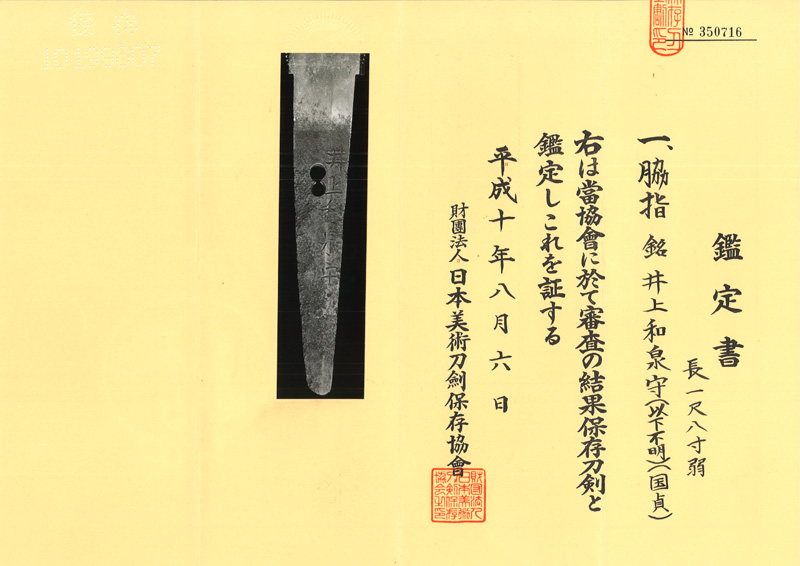 № 350716
鑑定書
長一尺八寸弱
一、脇指 銘 井上和泉守(以下不明)(国貞)
右は當協會に於て審査の結果保存刀剣と
鑑定しこれを証する
平成十年八月六日
財團法人日本美術刀劍保存協會
財団法人
日本美術
刀剣保存
協会之印
井上和泉守